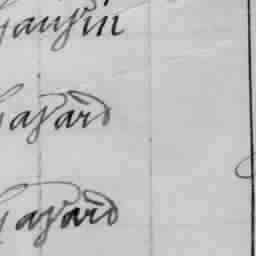 Gausin
Gasard
Gasard